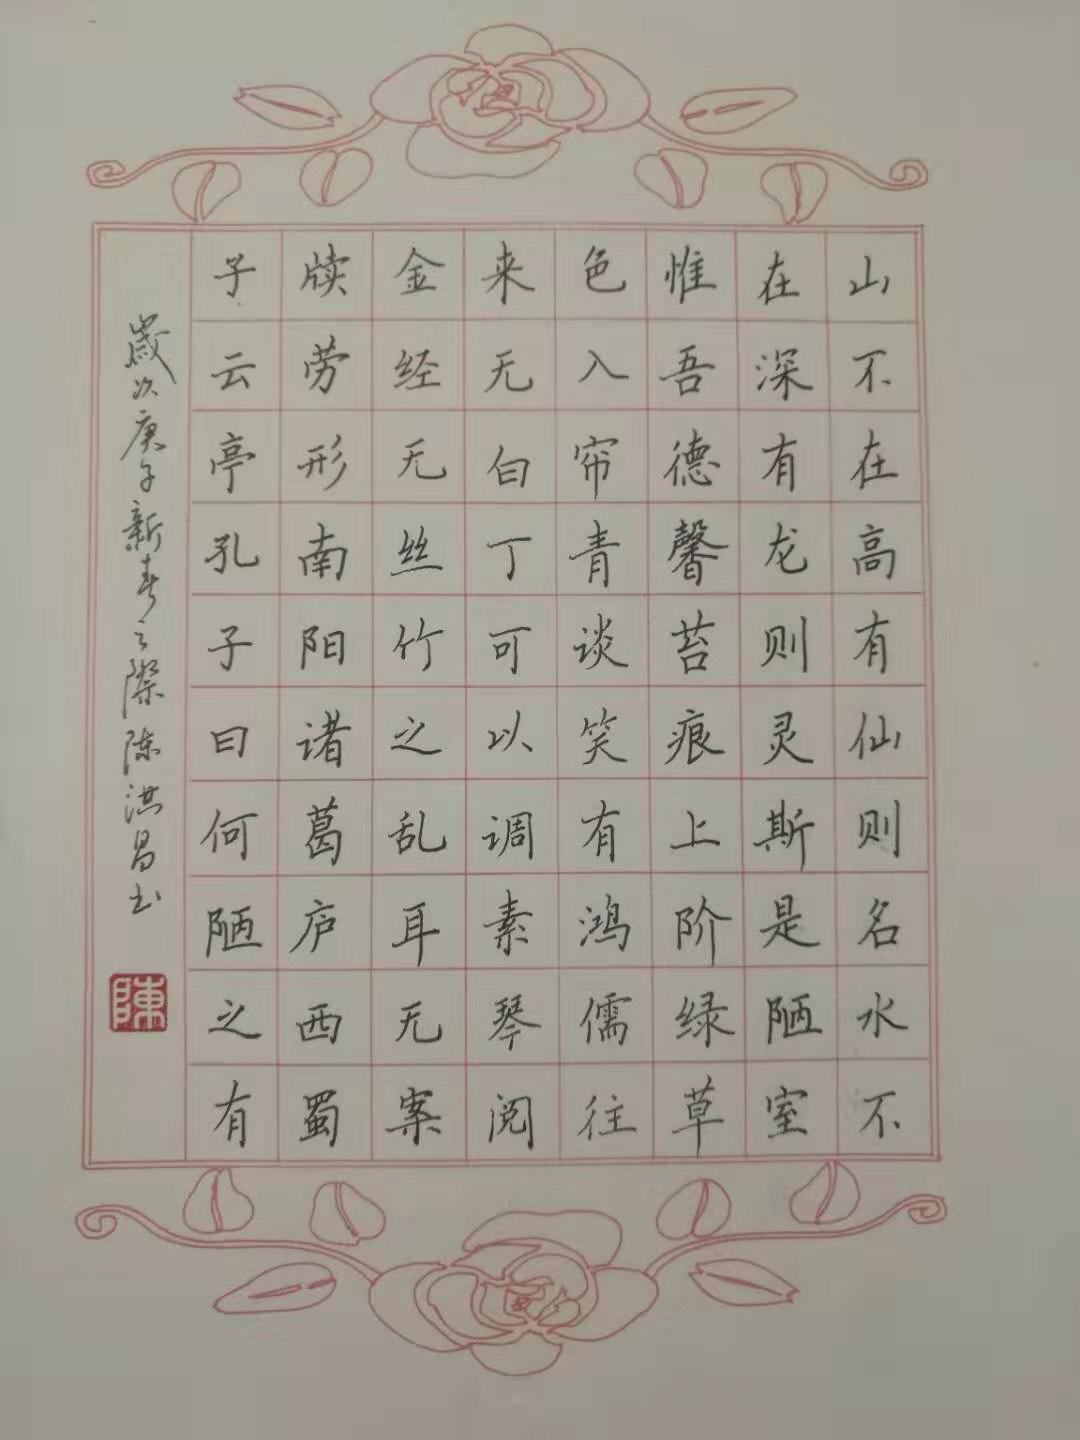 山不在高有仙则名水不
在深有龙则灵斯是陋室
惟吾德馨苔痕上阶绿草
色入帘青谈笑有鸿儒往
来无白丁可以调素琴阅
金经无丝竹之乱耳无案
牍劳形南阳诸葛庐西蜀
子云亭孔子曰何陋之有
歲次庚子新春之際陈洪昌书
陳